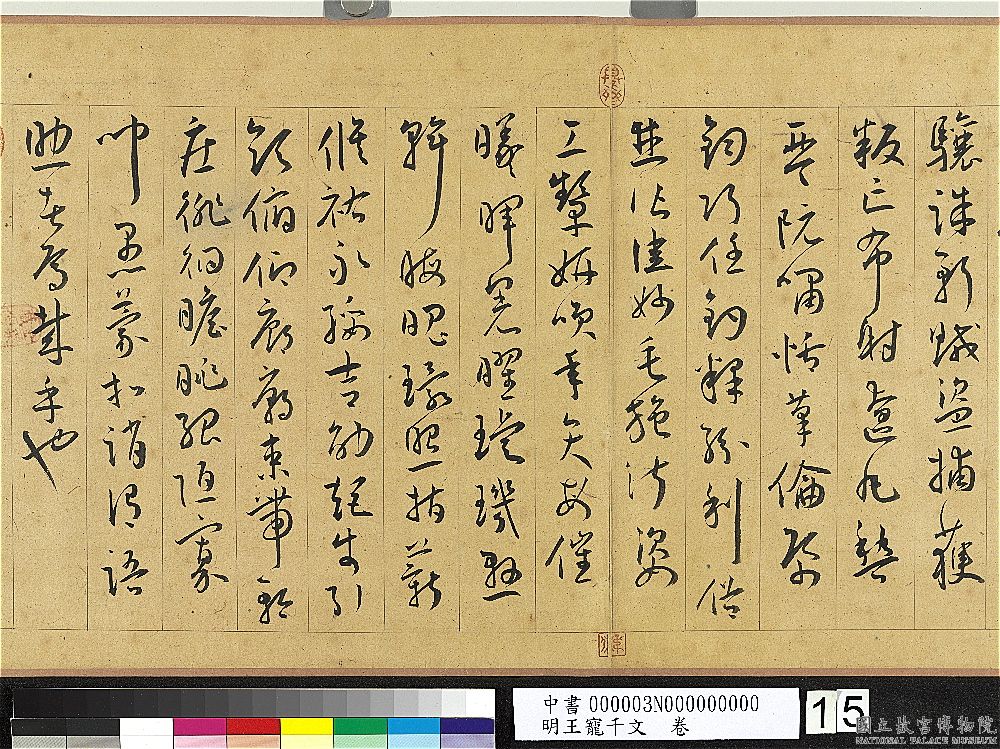 驤誅斬賊盜捕獲
叛亡布射遼丸嵇
琴阮嘯恬筆倫紙
鈞巧任釣釋紛利俗
並皆佳妙毛施淑姿
工顰妍笑年矢每催
曦暉晃曜璇璣懸
斡晦魄環照指薪
修祜永綏吉劭矩步引
領俯仰廊廟束帶矜
莊徘徊瞻眺孤陋寡
聞愚蒙等誚謂語
助者焉哉乎也
中書 000003N000000000
明王寵千文 卷
15
國立故宮博物院
NATIONAL PALACE MUSEUM